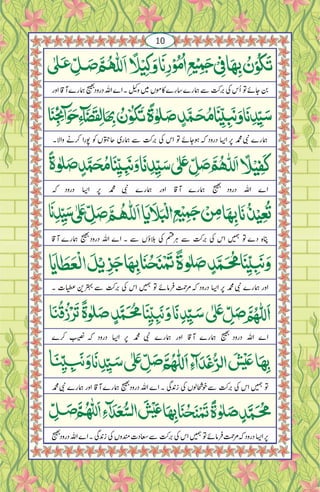 10
تَكُوْنُ بِهَا فِیْ جَمِیْعِ اُمُوْرِنَا وَكِیْلًا اَللّٰهُمَّ صَلِّ عَلٰی
بن جائے تو اُس کی برکت سے ہمارے سارے کاموں میں وکیل ۔ اے اللہ درود بھیج ہمارے آقا اور
سَیِّدِنَا وَنَبِیِّنَا مُحَمَّدٍ صَلٰوةً تَكُوْنُ بِقَضَآءِ حَوَآئِجِنَا
ہمارے نبی محمدؐ پر ایسا درود کہ ہوجائے تو اس کی برکت سے ہماری حاجتوں کو پورا کرنے والا۔
كَفِیْلًا اَللّٰهُمَّ صَلِّ عَلٰی سَیِّدِنَا وَنَبِیِّنَا مُحَمَّدٍ صَلٰوةً
اے اللہ درود بھیج ہمارے آقا اور ہمارے نبی محمدؐ پر ایسا درود کہ
تُعِیْذُنَا بِهَا مِنْ جَمِیْعِ الْبَلَایَا اَللّٰهُمَّ صَلِّ عَلٰی سَیِّدِنَا
پناہ دے تو ہمیں اس کی برکت سے ہرقسم کی بلاؤں سے ۔ اے اللہ درود بھیج ہمارے آقا
وَنَبِیِّنَا مُحَمَّدٍ صَلٰوةً تَمْنَحُنَا بِهَا جَزِیْلَ الْعَطَایَا
اور ہمارے نبی محمدؐ پر ایسا درود کہ مرحمت فرمائے تو ہمیں اس کی برکت سے بہترین عطیات ۔
اَللّٰهُمَّ صَلِّ عَلٰی سَیِّدِنَا وَنَبِیِّنَا مُحَمَّدٍ صَلٰوةً تَرْزُقُنَا
اے اللہ درود بھیج ہمارے آقا اور ہمارے نبی محمدؐ پر ایسا درود کہ نصیب کرے
بِهَا عَیْشَ الرُّغَدَآءِ اَللّٰهُمَّ صَلِّ عَلٰی سَیِّدِنَا وَنَبِیِّنَا
تو ہمیں اس کی برکت سے خوشحالوں کی زندگی ۔ اے اللہ درود بھیج ہمارے آقا اور ہمارے نبی محمدؐ
مُحَمَّدٍ صَلٰوةً تَمْنَحُنَا بِهَا عَیْشَ السُّعَدَآءِ اَللّٰهُمَّ صَلِّ
پر ایسا درود کہ مرحمت فرمائے تو ہمیں اس کی برکت سے سعادت مندوں کی زندگی ۔ اے اللہ درود بھیج